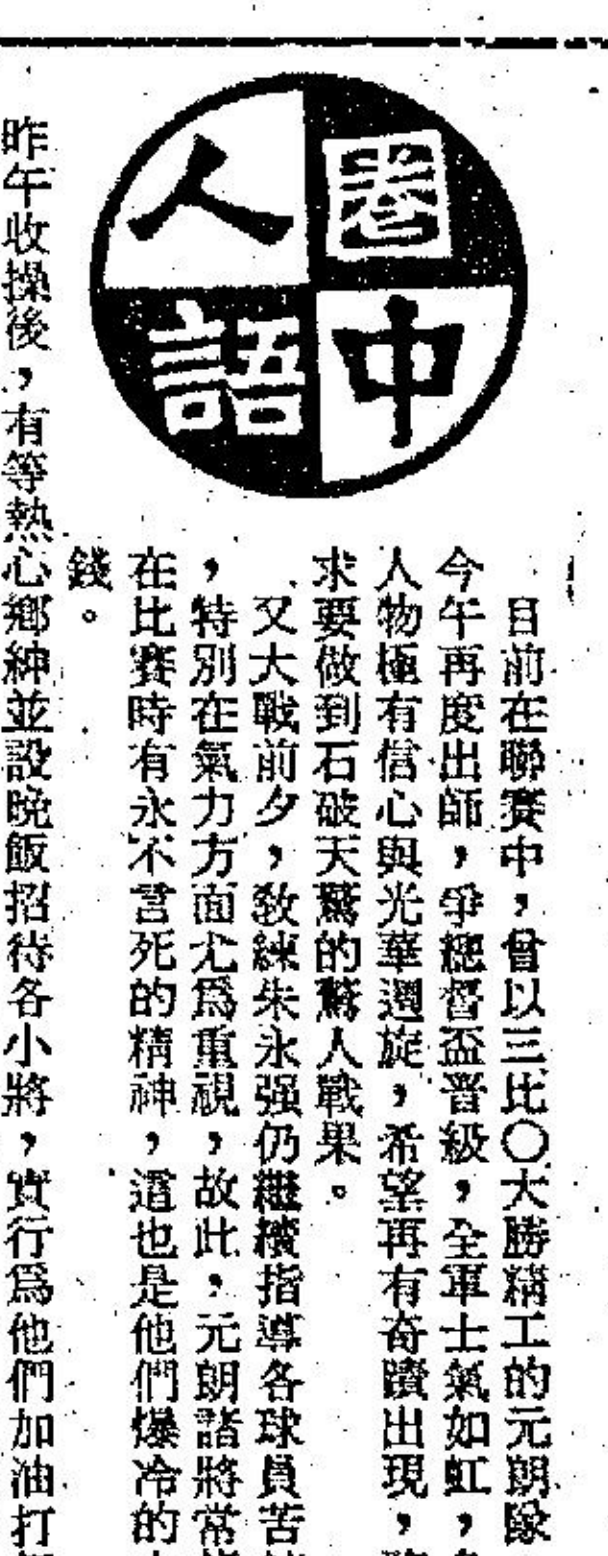 圈中
人語
目前在聯賽中，曾以三比〇大勝精工的元朗隊
今午再度出師，爭總督盃晉級，全軍士氣如虹，
人物極有信心與光華週旋，希望再有奇蹟出現，
求要做到石破天驚的驚人戰果。
又大戰前夕，敎練朱永强仍繼續指導各球員苦
，特別在氣力方面尤爲重視，故此，元朗諸將常
在比賽時有永不言死的精神，這也是他們爆冷的
錢。
昨午收操後，有等熱心鄉紳並設晚飯招待各小將，實行爲他們加油打